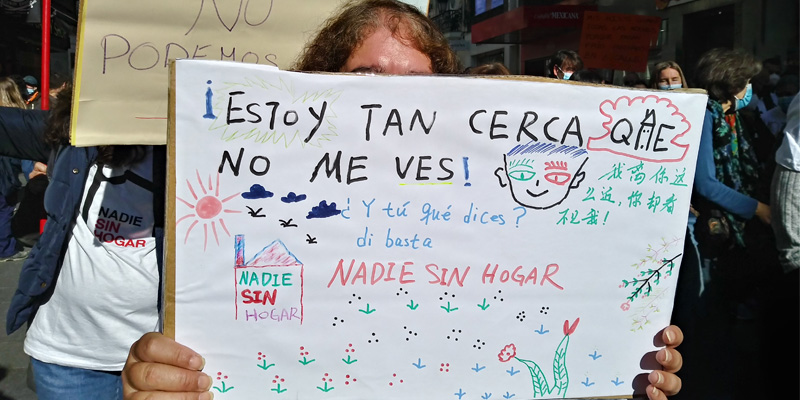 NO
PODEMOS
¡ESTOY TAN CERCA QUE
NO ME VES!
我离你这
么近，你却看
不见我！
¿Y tú qué dices?
di basta
NADIE SIN HOGAR
NADIE
SIN
HOGAR
NADIE
SIN
HOGAR
MEXICANA